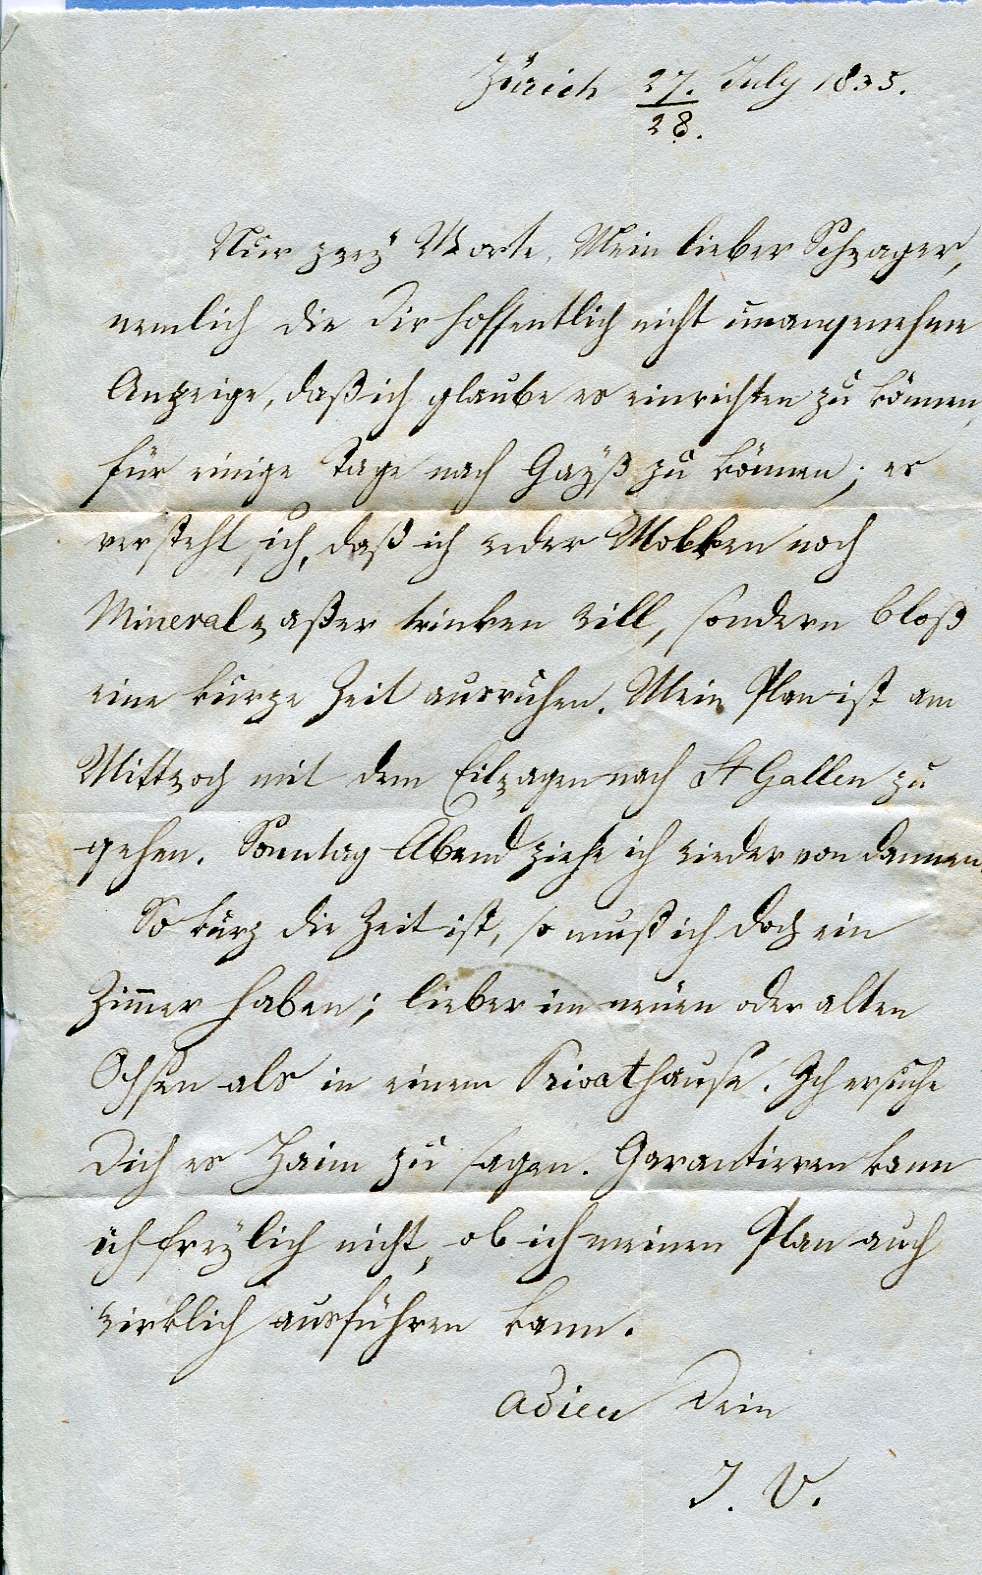 Zürich 27. July 1835.
28.
Nur zwey Worte, Mein lieber Schwager,
nemlich die Dir hoffentlich nicht unangenehme
Anzeige, daß ich glaube es einrichten zu können,
für einige Tage nach Gayß zu können; es
versteht sich, daß ich weder Molken noch
Mineralwaßer trinken will, sondern bloß
eine kurze Zeit ausruhen. Mein Plan ist am
Mittwoch mit dem Eilwagen nach St Gallen zu
gehen. Sonntag Abend ziehe ich wieder von dannen.
So kurz die Zeit ist, so muß ich doch ein
Zimmer haben; lieber im neuen oder alten
Ochsen als in einem Privathause. Ich ersuche
Dich es Heim zu sagen. Garantieren kann
ich freylich nicht, ob ich meinen Plan auch
wirklich ausführen kann.
Adieu Dein
J. V.